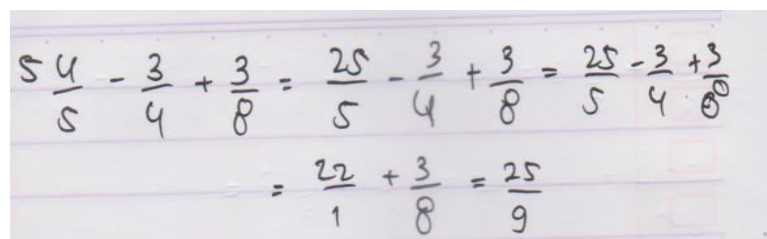 5 4/5 - 3/4 + 3/8 = 25/5 - 3/4 + 3/8 = 25/5 - 3/4 + 3/8
= 22/1 + 3/8 = 25/9